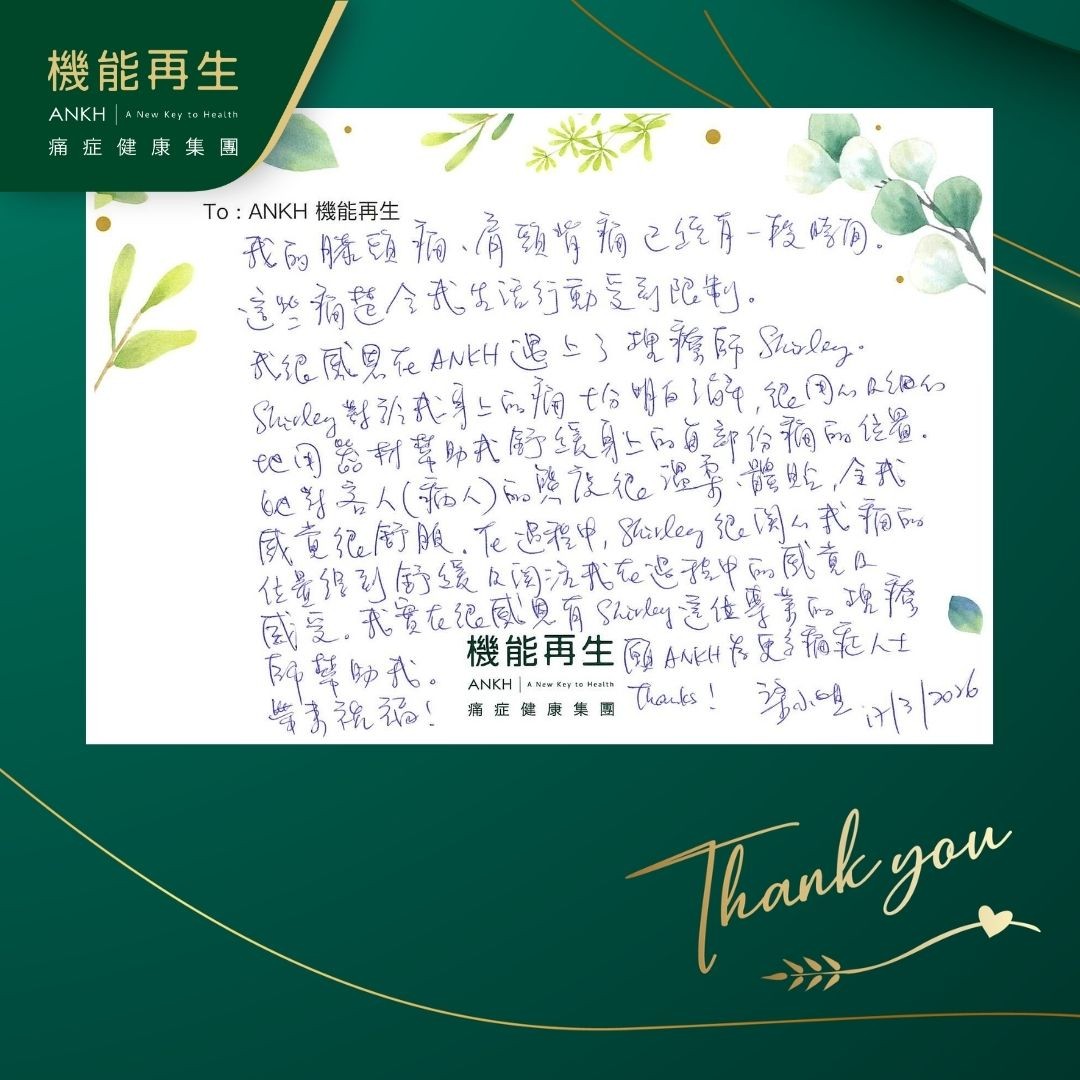 機能再生
ANKH | A New Key to Health
痛症健康集團
To : ANKH 機能再生
我的膝頭痛、肩頸背痛已經有一段時間。
這些痛楚令我生活行動受到限制。
我很感恩在ANKH遇上了理療師Shirley.
Shirley對於我身上的痛十分明白了解, 很用心及細心
地用器材幫助我舒緩身上的每部份痛的位置.
她對客人(病人)的態度很溫柔、體貼, 令我
感覺很舒服. 在過程中, Shirley很關心我痛的
位置得到舒緩及關注我在過程中的感覺及
感受. 我實在很感恩有Shirley這位專業的理療
師幫助我。
願ANKH為更多痛症人士
帶來祝福!
機能再生
ANKH | A New Key to Health
痛症健康集團
Thanks!
梁小姐 17/3/2026
Thank you